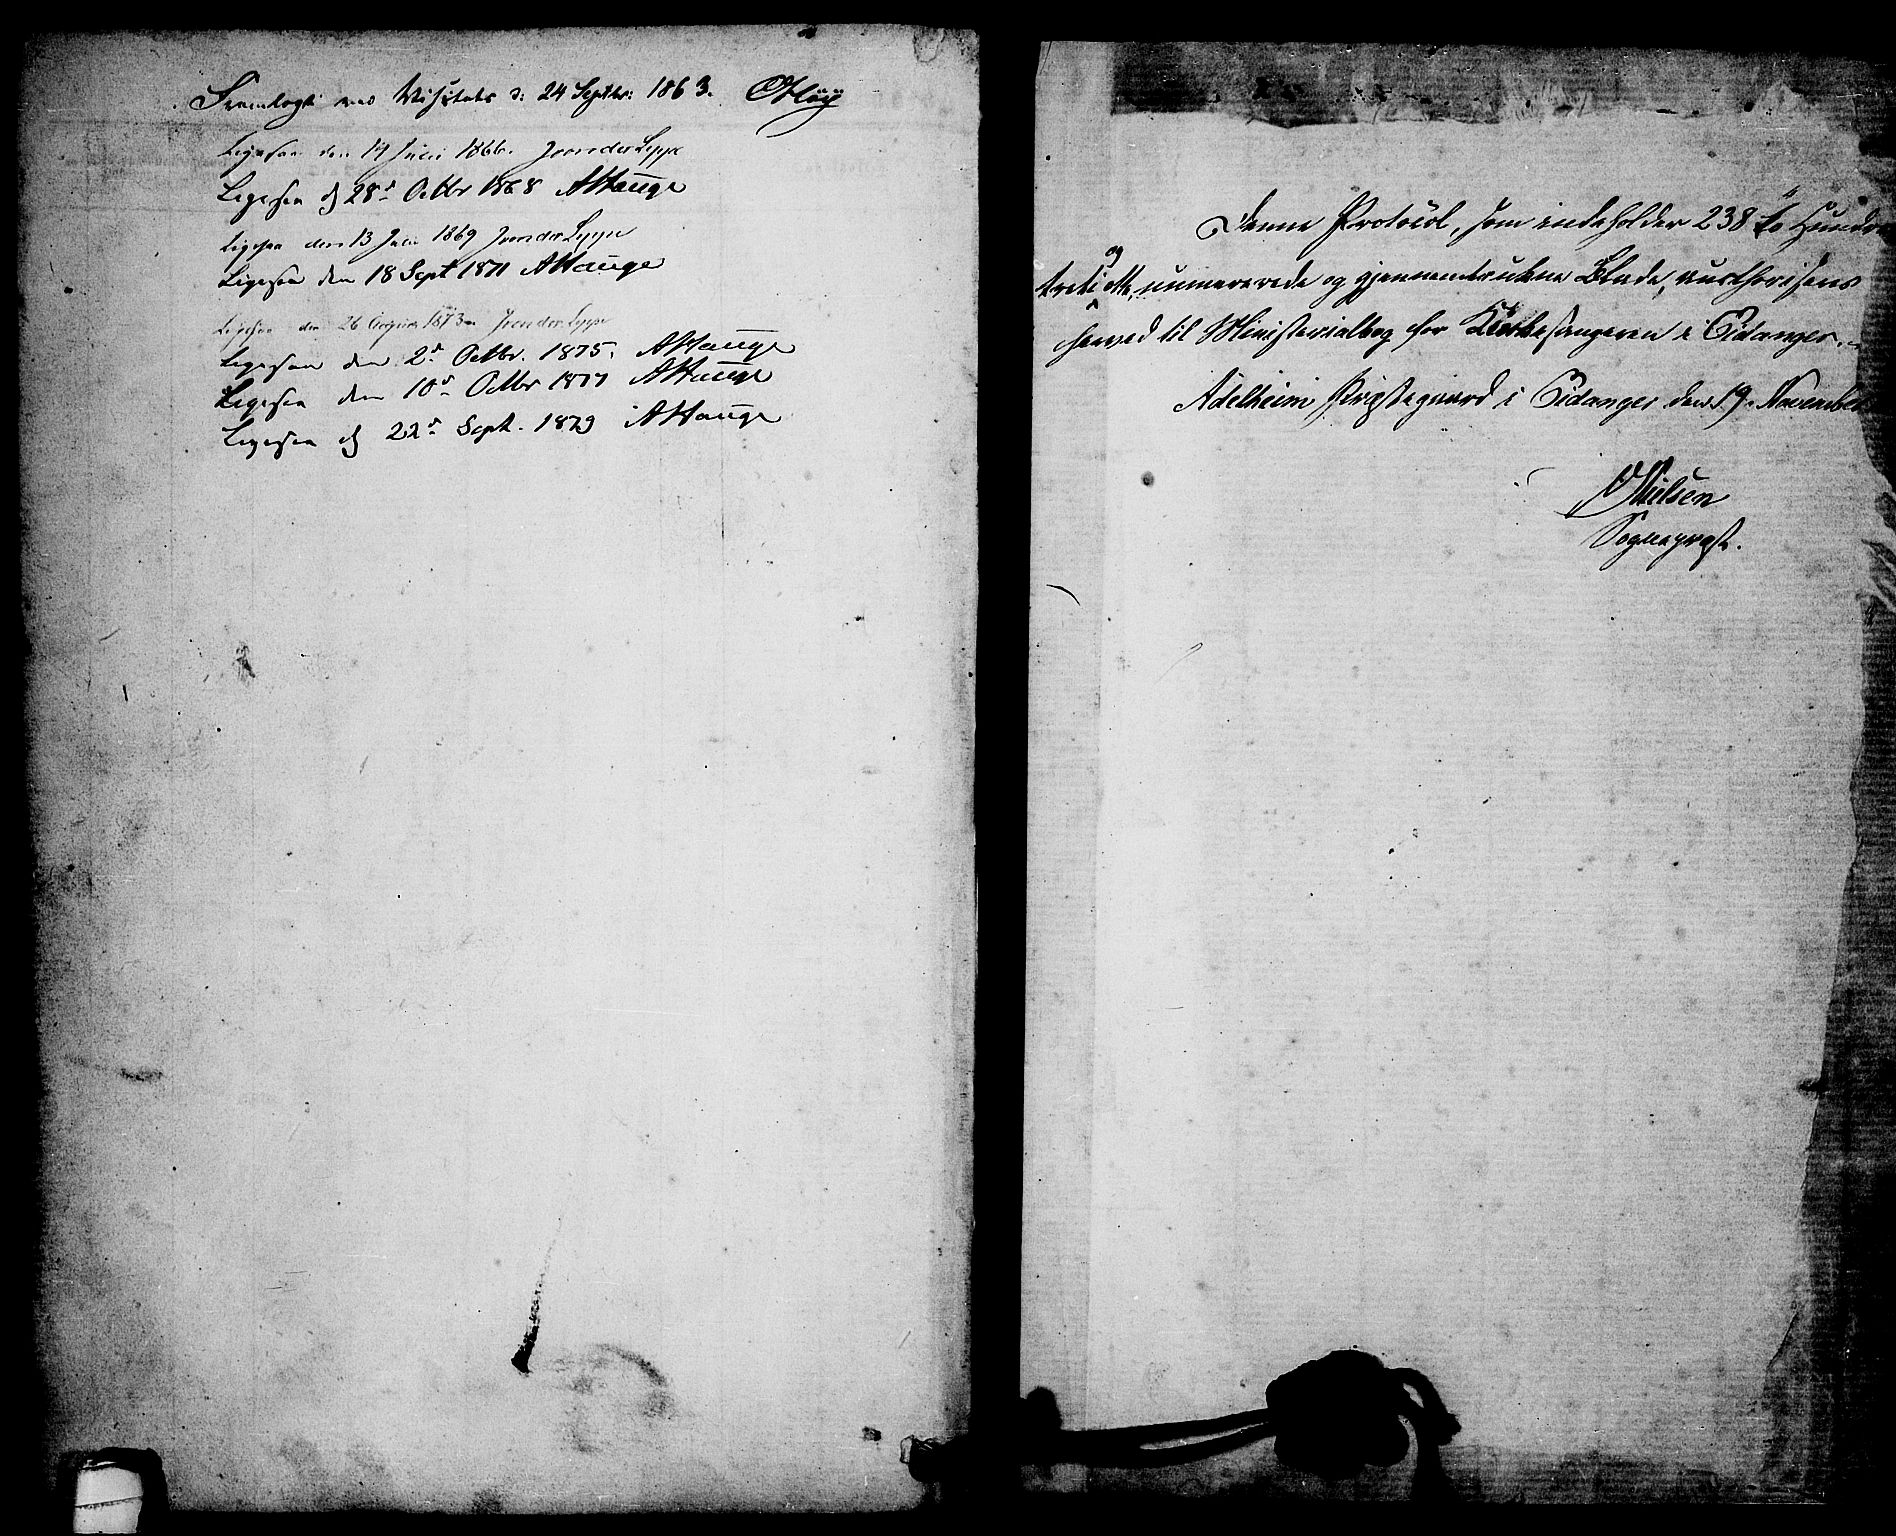 Fremlagt ved Visitats d: 24 Septbr: 1863.
Ligesaa den 14 Juni 1866. J von der Lippe
Ligesaa d 28d Octbr 1868 A Hauge
Ligesaa den 13 Juni 1869 J von der Lippe
Ligesaa den 18 Sept 1871 A Hauge
Ligesaa den 26 August 1873. J von der Lippe
Ligesaa den 2d Octbr. 1875. A Hauge
Ligesaa den 10d Octbr 1877 A Hauge
Ligesaa d 22d Sept. 1879 A Hauge
Denne Protocol, som indeholder 238 to Hundre
og
treti otte, numererede og gjennemtrukne Blade, authoriseres
herved til Ministerialbog for Kirkesangeren i Eidanger.
Adelheim Præstegaard i Eidanger den 19. November
Nielsen
Sognepræst.